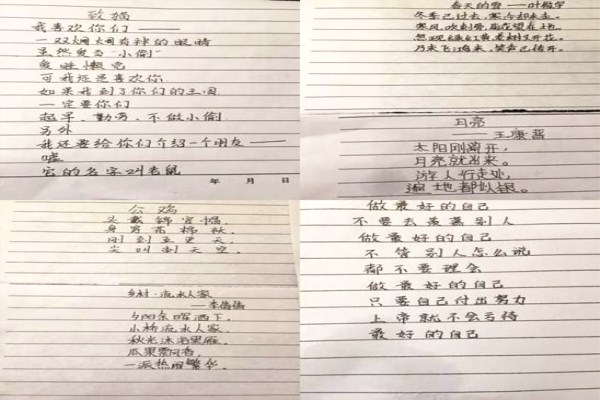 致猫
我喜欢你们——
一双炯炯有神的眼睛
虽然爱当“小偷”
爱睡懒觉
可我还是喜欢你
如果我到了你们的王国
一定要你们
起早、勤劳、不做小偷
另外
我还要给你们介绍一个朋友——
嘘
它的名字叫老鼠
年 月 日
春天的雪——叶榆宁
冬季已过去，寒冷却未走。
寒风吹刺骨，
月亮
——王康晋
太阳刚离开，
月亮就出来。
游人行走处，
遍地都似银。
公鸡
头戴锦官帽，
身穿花棉袄，
刚到五更天，
尖叫刺天空。
乡村·流水人家
——李倩倩
夕阳余晖洒下，
小桥流水人家，
秋光沐浴里雁。
瓜果飘香，
一派热闹繁华。
做最好的自己
不要去羡慕别人
做最好的自己
不管别人怎么说
都不要理会
做最好的自己
只要自己付出努力
上帝就不会亏待
最好的自己